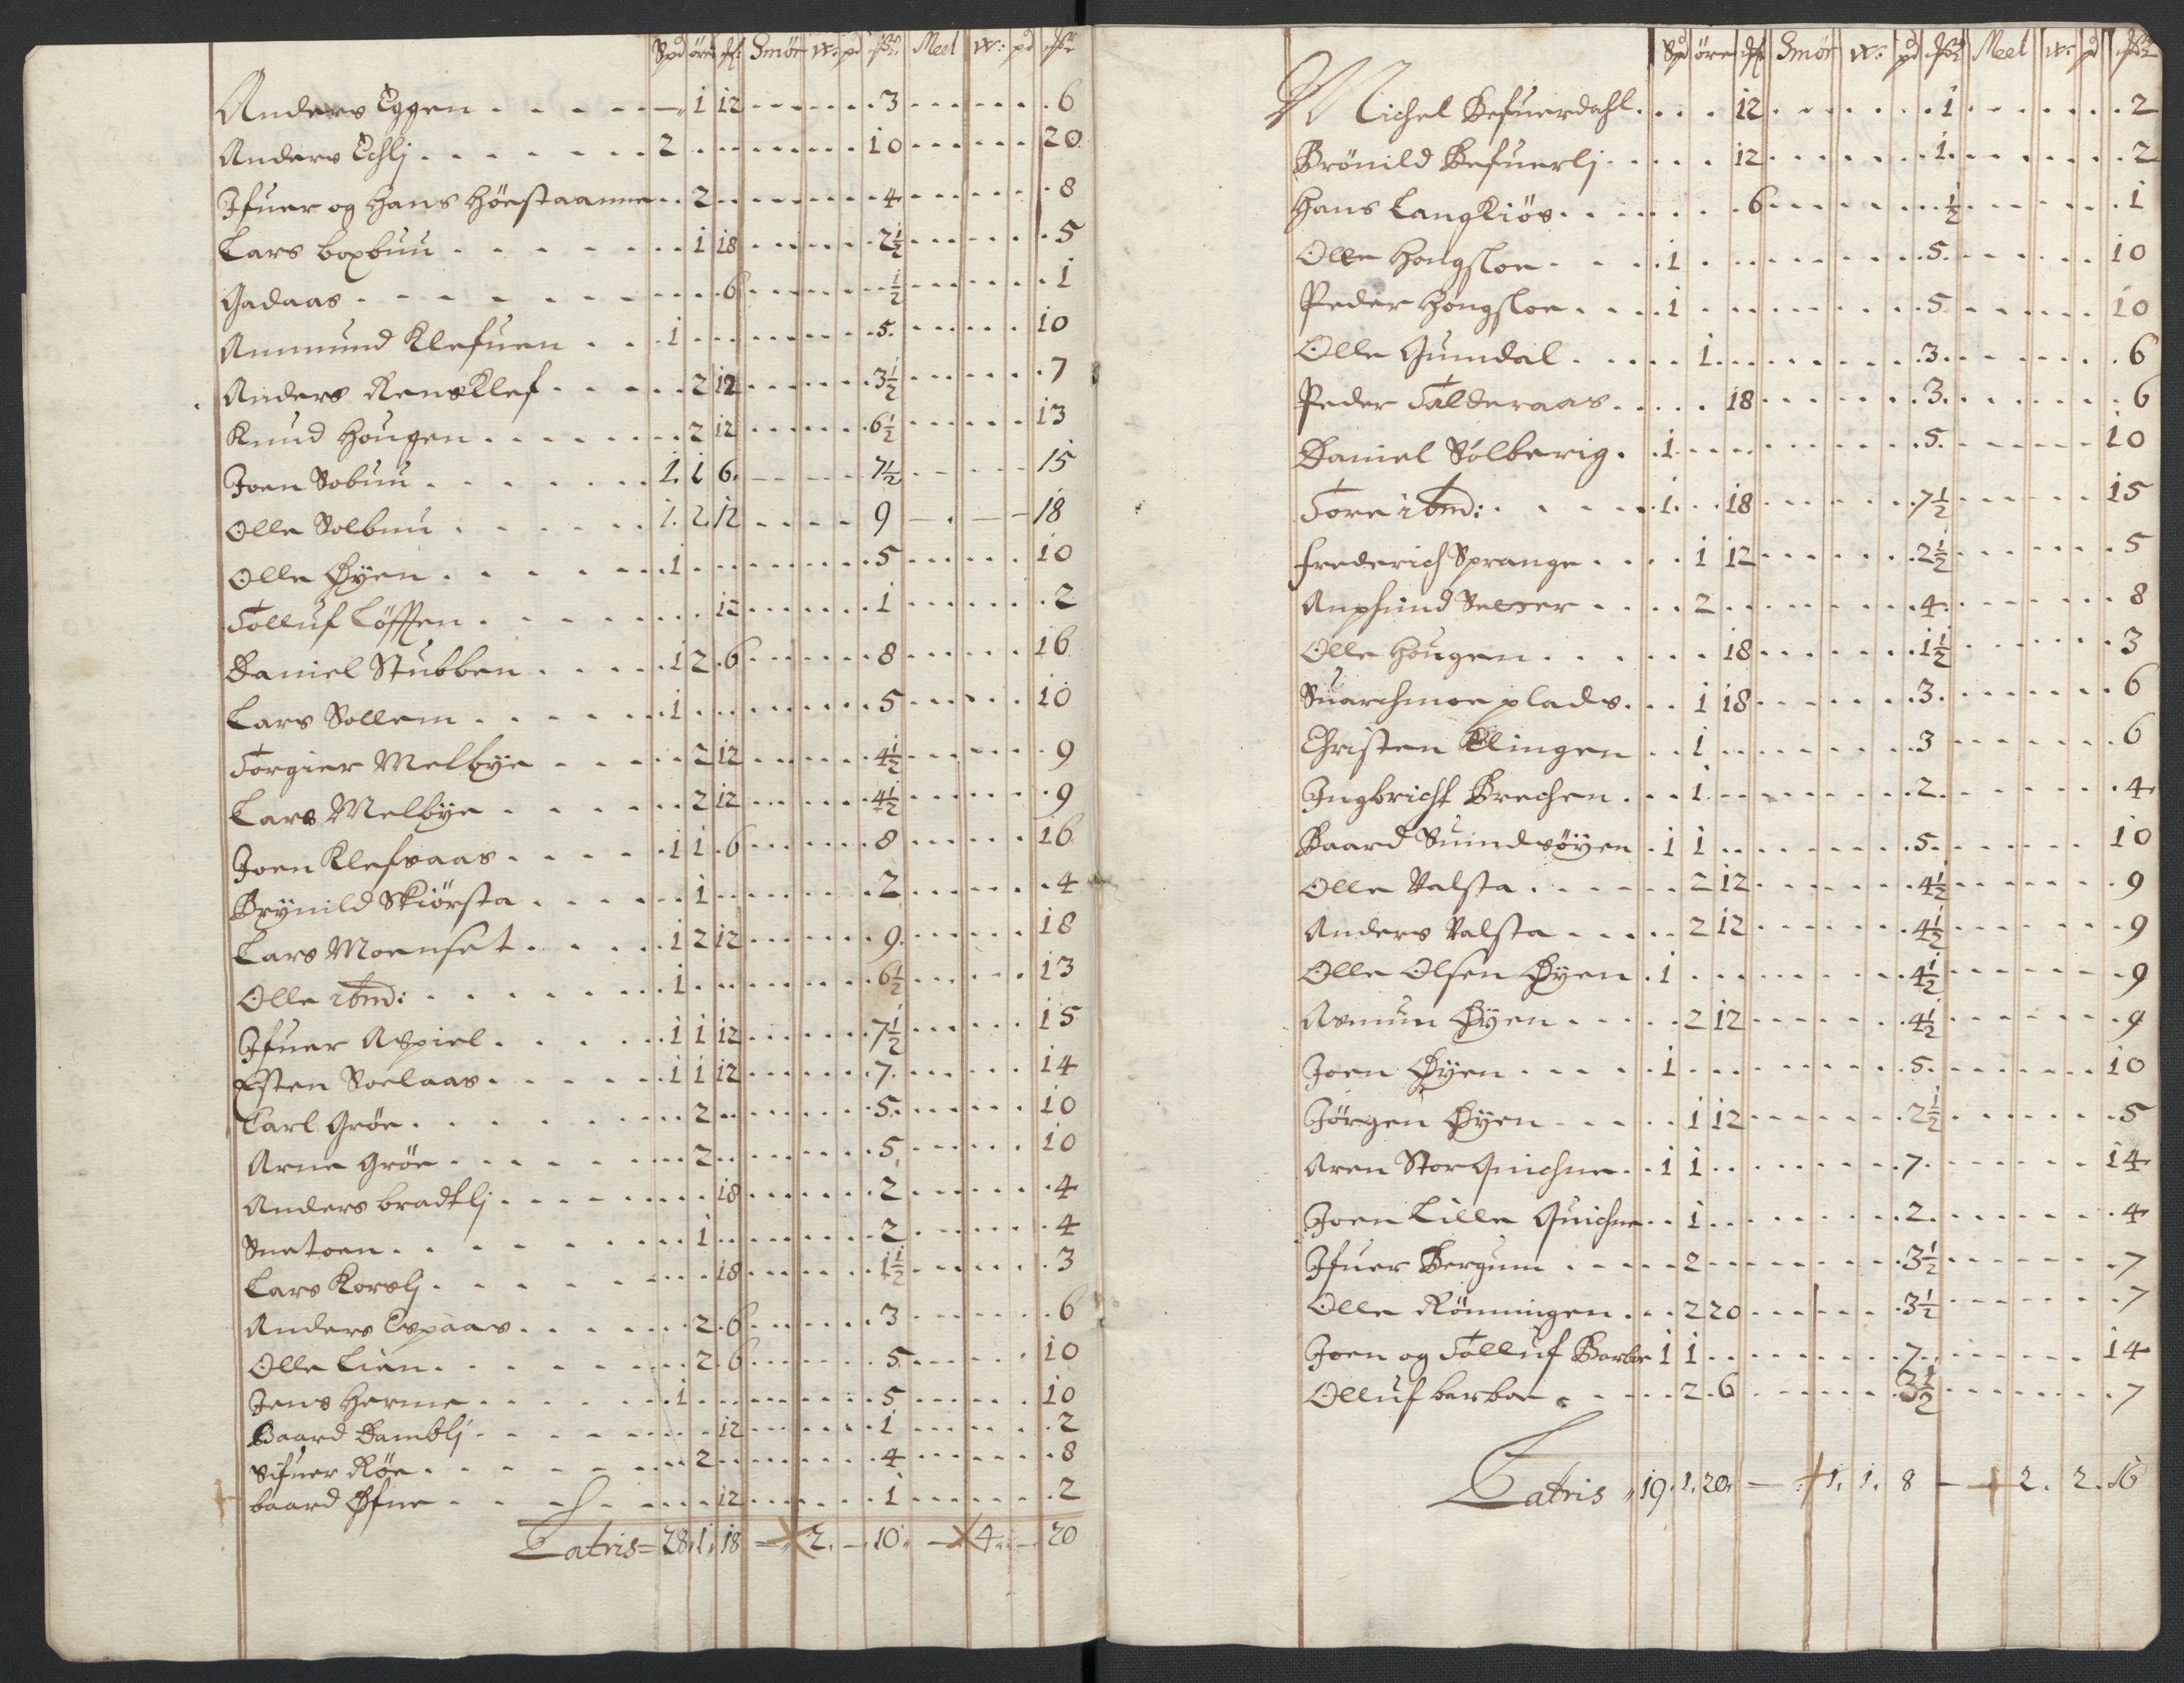 Spd öre Smör W: pd Meel W: pd
Anders Eggen - 1 12 3 6
Anders Echlj 2 10 20
Jfuer og Hans Höestaanne 2 4 8
Lars boxbuu 1 18 2½ 5
Gadaas 6 ½ 1
Ammund Klefuen 1 5 10
Anders Rensklef 2 12 3½ 7
Knud Hougen 2 12 6½ 13
Joen Sobuu 1 1 6 7½ 15
Olle Solbuu 1 2 12 9 18
Olle Øyen 1 5 10
Tolluf Löffen 12 1 2
Daniel Stubben 1 2 6 8 16
Lars Sollem 1 5 10
Torgier Melbye 2 12 4½ 9
Lars Melbye 2 12 4½ 9
Joen Klefsaas 1 1 6 8 16
Brynild Skiörsta 1 2 4
Lars Moenset 1 2 12 9 18
Olle ibmd: 1 6½ 13
Jfuer Aspiel 1 1 12 7½ 15
Esten Soelaas 1 1 12 7 14
Carl Gröe 2 5 10
Arne Gröe 2 5 10
Anders bradtlj 18 2 4
Snetoen 1 2 4
Lars Korslj 18 1½ 3
Anders Espaas 2 6 3 6
Olle Lien 2 6 5 10
Jens Herme 1 5 10
Baard Damblj 12 1 2
Sifuer Röe 2 4 8
baard Øfne 12 1 2
Latris = 28 1 18 2 - 10 4 - 20
Spd öre Smör W: pd Meel W: pd
Michel Defuerdahl 12 1 2
Brönild Defuerlj 12 1 2
Hans Langkiös 6 ½ 1
Olle Hongsloe 1 5 10
Peder Hongsloe 1 5 10
Olle Gumdal 1 3 6
Peder Talderaas 18 3 6
Daniel Sölberig 1 5 10
Tore ibmd: 1 18 7½ 15
Frederich Sprange 1 12 2½ 5
Amphind 2 4 8
Olle Hougen 18 1½ 3
Suarchmoe plads 1 18 3 6
Christen Klingen 1 3 6
Ingbricht Brechen 1 2 4
Baard Suindsöyen 1 1 5 10
Olle Valsta 2 12 4½ 9
Anders Valsta 2 12 4½ 9
Olle Olsen Øyen 1 4½ 9
Asmun Øyen 2 12 4½ 9
Joen Øyen 1 5 10
Jörgen Øyen 1 12 2½ 5
Aren Stor Quichne 1 1 7 14
Joen Lille Quichne 1 2 4
Jfuer Bergum 2 3½ 7
Olle Rönningen 2 20 3½ 7
Joen og Tolluf Barboe 1 1 7 14
Olluf barboe 2 6 3½ 7
Latris 19 1 20 - 1 1 8 - 2 2 16